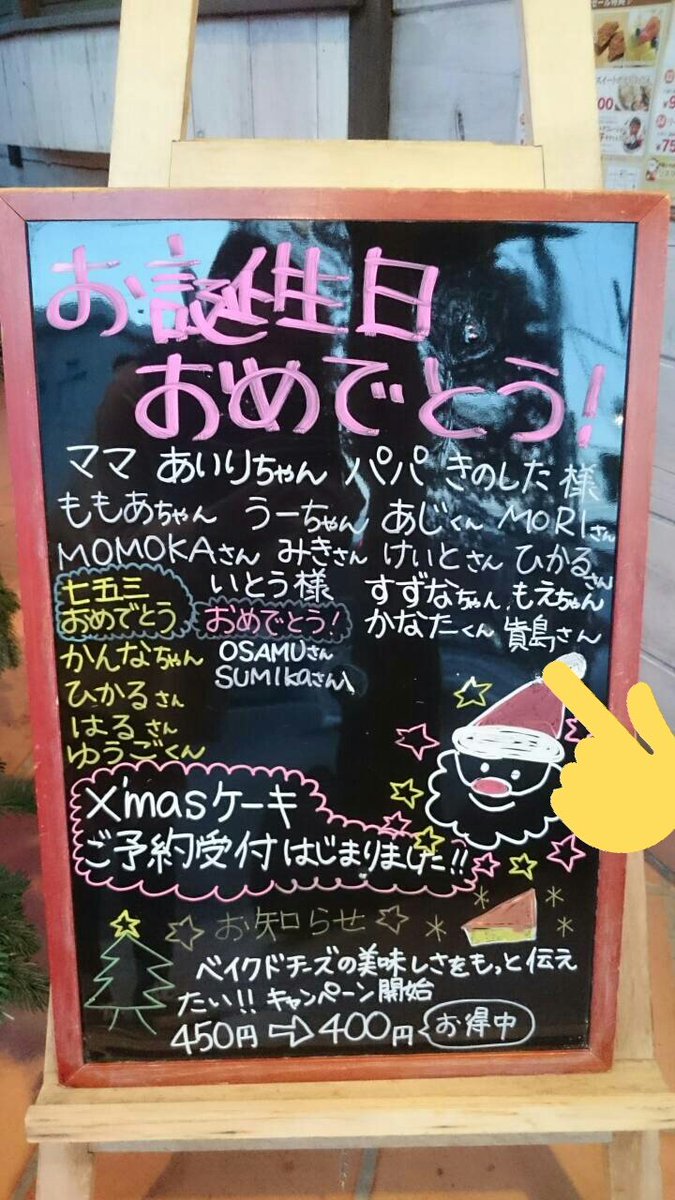 お誕生日
おめでとう!
ママ あいりちゃん パパ きのした様
ももあちゃん うーちゃん あじくん MORIさん
MOMOKAさん みきさん けいとさん ひかるさん
いとう様 すずなちゃん もえちゃん
かなたくん 貴島さん
七五三
おめでとう
かんなちゃん
ひかるさん
はるさん
ゆうごくん
おめでとう!
OSAMUさん
SUMIKAさん
X'masケーキ
ご予約受付はじまりました!!
お知らせ
ベイクドチーズの美味しさをもっと伝え
たい!! キャンペーン開始
450円⇨400円 お得中